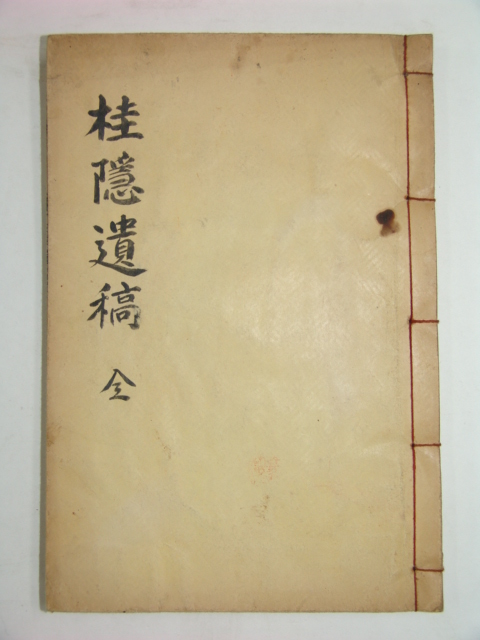 桂隱遺稿 全